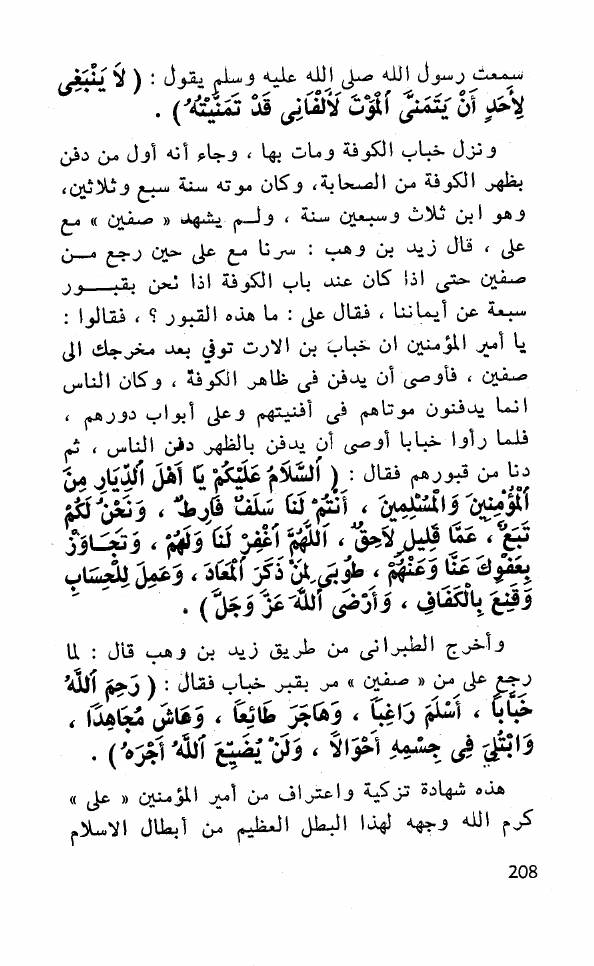 سمعت رسول الله صلى الله عليه وسلم يقول : ( لَا يَنْبَغِى
لِأَحَدٍ أَنْ يَتَمَنَّى ٱلْمَوْتَ لَأَلْفَانِى قَدْ تَمَنَّيْتُهُ ) .
ونزل خباب الكوفة ومات بها ، وجاء أنه أول من دفن
بظهر الكوفة من الصحابة، وكان موته سنة سبع وثلاثين،
وهو ابن ثلاث وسبعين سنة ، ولـم يشهد « صفين » مع
على ، قال زيد بن وهب : سرنا مع على حين رجع مـــن
صفين حتى اذا كان عند باب الكوفة اذا نحن بقبـــور
سبعة عن أيماننا ، فقال على : ما هذه القبور ؟ ، فقالوا :
يا أمير المؤمنين ان خباب بن الارت توفي بعد مخرجك الى
صفين ، فأوصى أن يدفن فى ظاهر الكوفة ، وكان الناس
انما يدفنون موتاهم فى أفنيتهم وعلى أبواب دورهم ،
فلما رأوا خبابا أوصى أن يدفن بالظهر دفن الناس ، ثم
دنا من قبورهم فقال : ( ٱلسَّلَامُ عَلَيْكُمْ يَا أَهْلَ ٱلدِّيَارِ مِنَ
ٱلْمُؤْمِنِينَ وَالْمُسْلِمِينَ ، أَنْتُمْ لَنَا سَلَفٌ فَارِطٌ ، وَنَحْنُ لَكُمْ
تَبَعٌ ، عَمَّا قَلِيلٍ لَاحِقٌ ، ٱللَّهُمَّ ٱغْفِرْ لَنَا وَلَهُمْ ، وَتَجَــاوَزْ
بِعَفْوِكَ عَنَّا وَعَنْهُمْ ، طُوبَى لِمَنْ ذَكَرَ ٱلْمَعَادَ ، وَعَمِلَ لِلْحِسَابِ
وَقَنِعَ بِالْكَفَافِ ، وَأَرْضَى ٱللَّهَ عَزَّ وَجَلَّ ) .
وأخرج الطبرانى من طريق زيد بن وهب قال : لما
رجع على من « صفين » مر بقبر خباب فقال : ( رَحِمَ ٱللَّهُ
خَبَّاباً ، أَسْلَمَ رَاغِباً ، وَهَاجَرَ طَائِعاً ، وَعَاشَ مُجَاهِدًا ،
وَابْتُلِىَ فِى جِسْمِهِ أَحْوَالاً ، وَلَنْ يُضَيِّعَ ٱللَّهُ أَجْرَهُ ) .
هذه شهادة تزكية واعتراف من أمير المؤمنين « على »
كرم الله وجهه لهذا البطل العظيم من أبطال الاسلام
208